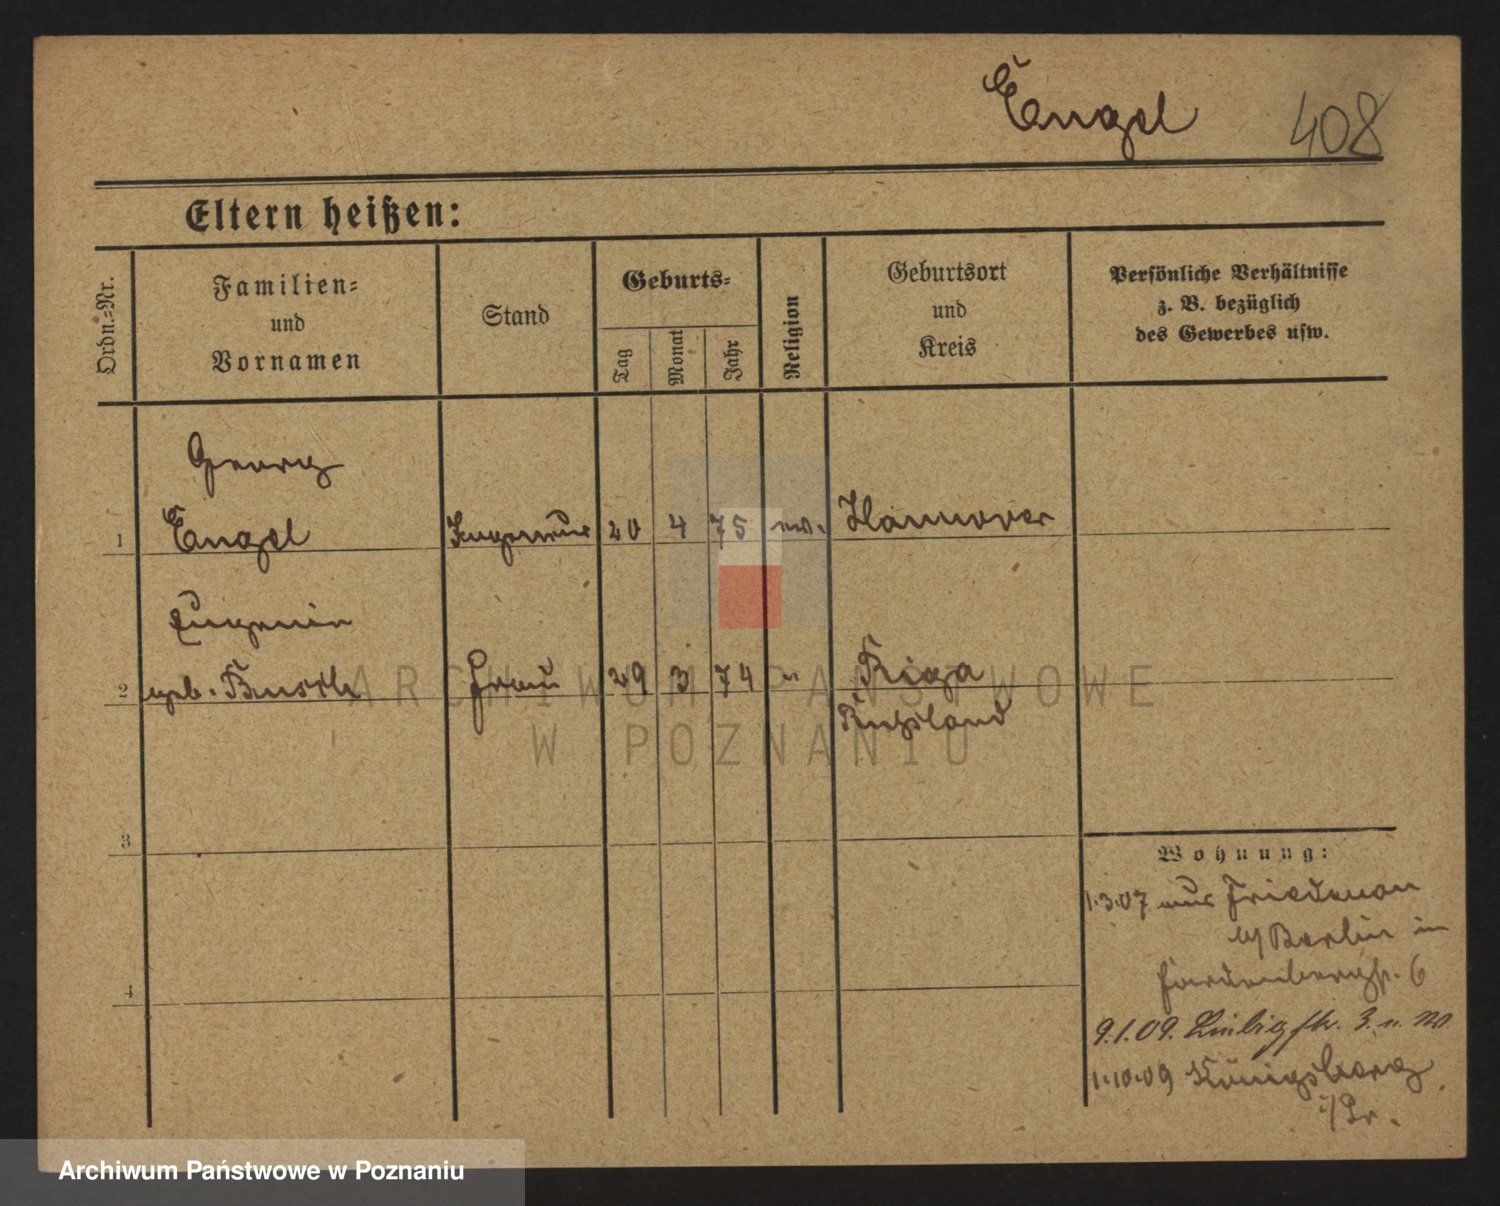 Engel 408
Eltern heißen:
Ordn.=Nr.
Familien=
und
Vornamen
Stand
Geburts=
Tag
Monat
Jahr
Religion
Geburtsort
und
Kreis
Persönliche Verhältnisse
z. B. bezüglich
des Gewerbes usw.
Georg
1 Engel Ingenieur 20 4 75 ev. Hannover
Eugenie
2 geb. Busch Frau 29 3 74 " Riga
Rußland
3
4
Wohnung:
1.3.07 aus Friedenau
b/Berlin in
Hardenbergstr. 6
9.1.09. Liebigstr. 3.
1.10.09 Königsberg
i/Pr.
ARCHIWUM PAŃSTWOWE
W POZNANIU
Archiwum Państwowe w Poznaniu